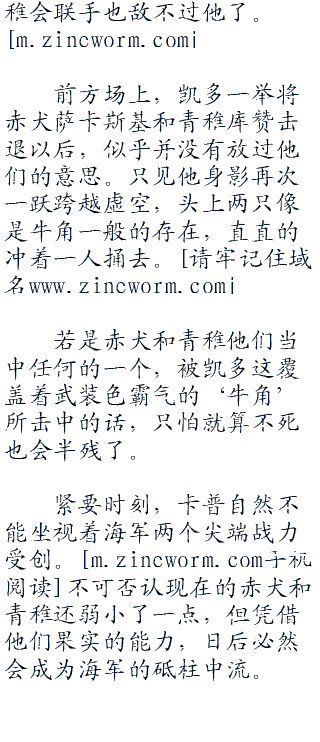 稚会联手也敌不过他了。
[m.zincworm.com]
前方场上，凯多一举将
赤犬萨卡斯基和青稚库赞击
退以后，似乎并没有放过他
们的意思。只见他身影再次
一跃跨越虚空，头上两只像
是牛角一般的存在，直直的
冲着一人捅去。[请牢记住域
名www.zincworm.com]
若是赤犬和青稚他们当
中任何的一个，被凯多这覆
盖着武装色霸气的‘牛角’
所击中的话，只怕就算不死
也会半残了。
紧要时刻，卡普自然不
能坐视着海军两个尖端战力
受创。[m.zincworm.com手机
阅读]不可否认现在的赤犬和
青稚还弱小了一点，但凭借
他们果实的能力，日后必然
会成为海军的砥柱中流。